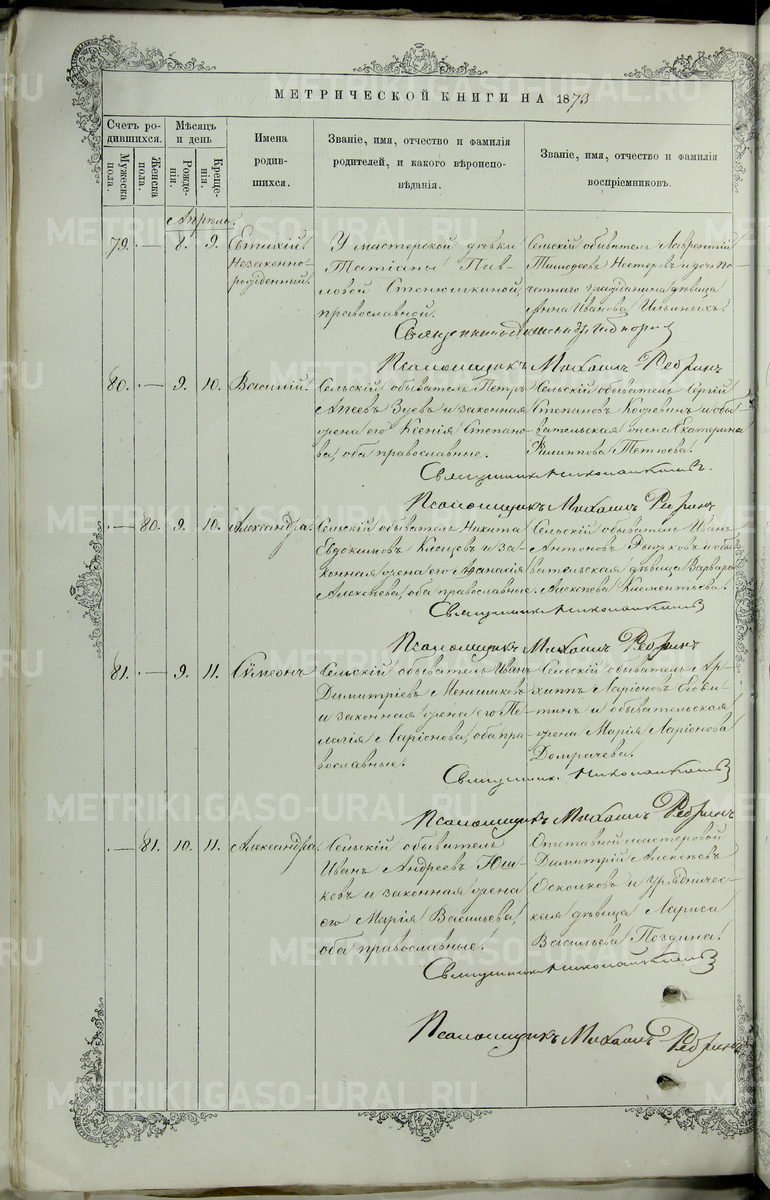 МЕТРИЧЕСКОЙ КНИГИ НА 1873
Счетъ родившихся.
Мужеска пола.
Женска пола.
Мѣсяцъ и день
Рожденія.
Крещенія.
Имена
родив-
шихся.
Званіе, имя, отчество и фамилія
родителей, и какого вѣроиспо-
вѣданія.
Званіе, имя, отчество и фамилія
воспріемниковъ.
Апрѣль.
79. 8. 9. Евтихій.
Незаконно-
рожденный.
У мастерской дѣвки
Татіаны Пав-
ловой Стенюшкиной,
православной.
Сельскій обыватель Лаврентій
Тимофеевъ Нестеровъ и дочь По-
четнаго гражданина дѣвица
Анна Иванова Ильиныхъ.
Псаломщикъ Михаилъ Ребринъ
80. 9. 10. Василій.
Сельскій обыватель Петръ
Зуевъ и законная
жена его Ксенія Степано-
ва, оба православные.
Сельскій обыватель Сергій
Степановъ и обы-
вательская жена Екатерина
Филиппова Тетюева.
Священникъ
Псаломщикъ Михаилъ Ребринъ
80. 9. 10. Александра.
Сельскій обыватель Никита
Евдокимовъ Клещевъ и за-
конная жена его Афанасія
Алексѣева, оба православные.
Сельскій обыватель Иванъ
Антоновъ и обы-
вательская дѣвица Варвара
Алексѣева Клементьева.
Священникъ
Псаломщикъ Михаилъ Ребринъ
81. 9. 11. Сѵмеонъ
Сельскій обыватель Иванъ
Димитріевъ Меншиковъ
и законная жена его Пе-
лагія Ларіонова, оба пра-
вославные.
Сельскій обыватель Ар-
хиппъ Ларіоновъ
и обывательская
жена Марія Ларіонова
Домрачева.
Священникъ
Псаломщикъ Михаилъ Ребринъ
81. 10. 11. Александра.
Сельскій обыватель
Иванъ Андреевъ Юш-
ковъ и законная жена
его Марія Васильева,
оба православные.
Отставной мастеровой
Димитрій Алексѣевъ
Осколковъ и урядничес-
кая дѣвица Лариса
Васильева Поздина.
Священникъ
Псаломщикъ Михаилъ Ребринъ
METRIKI.GASO-URAL.RU